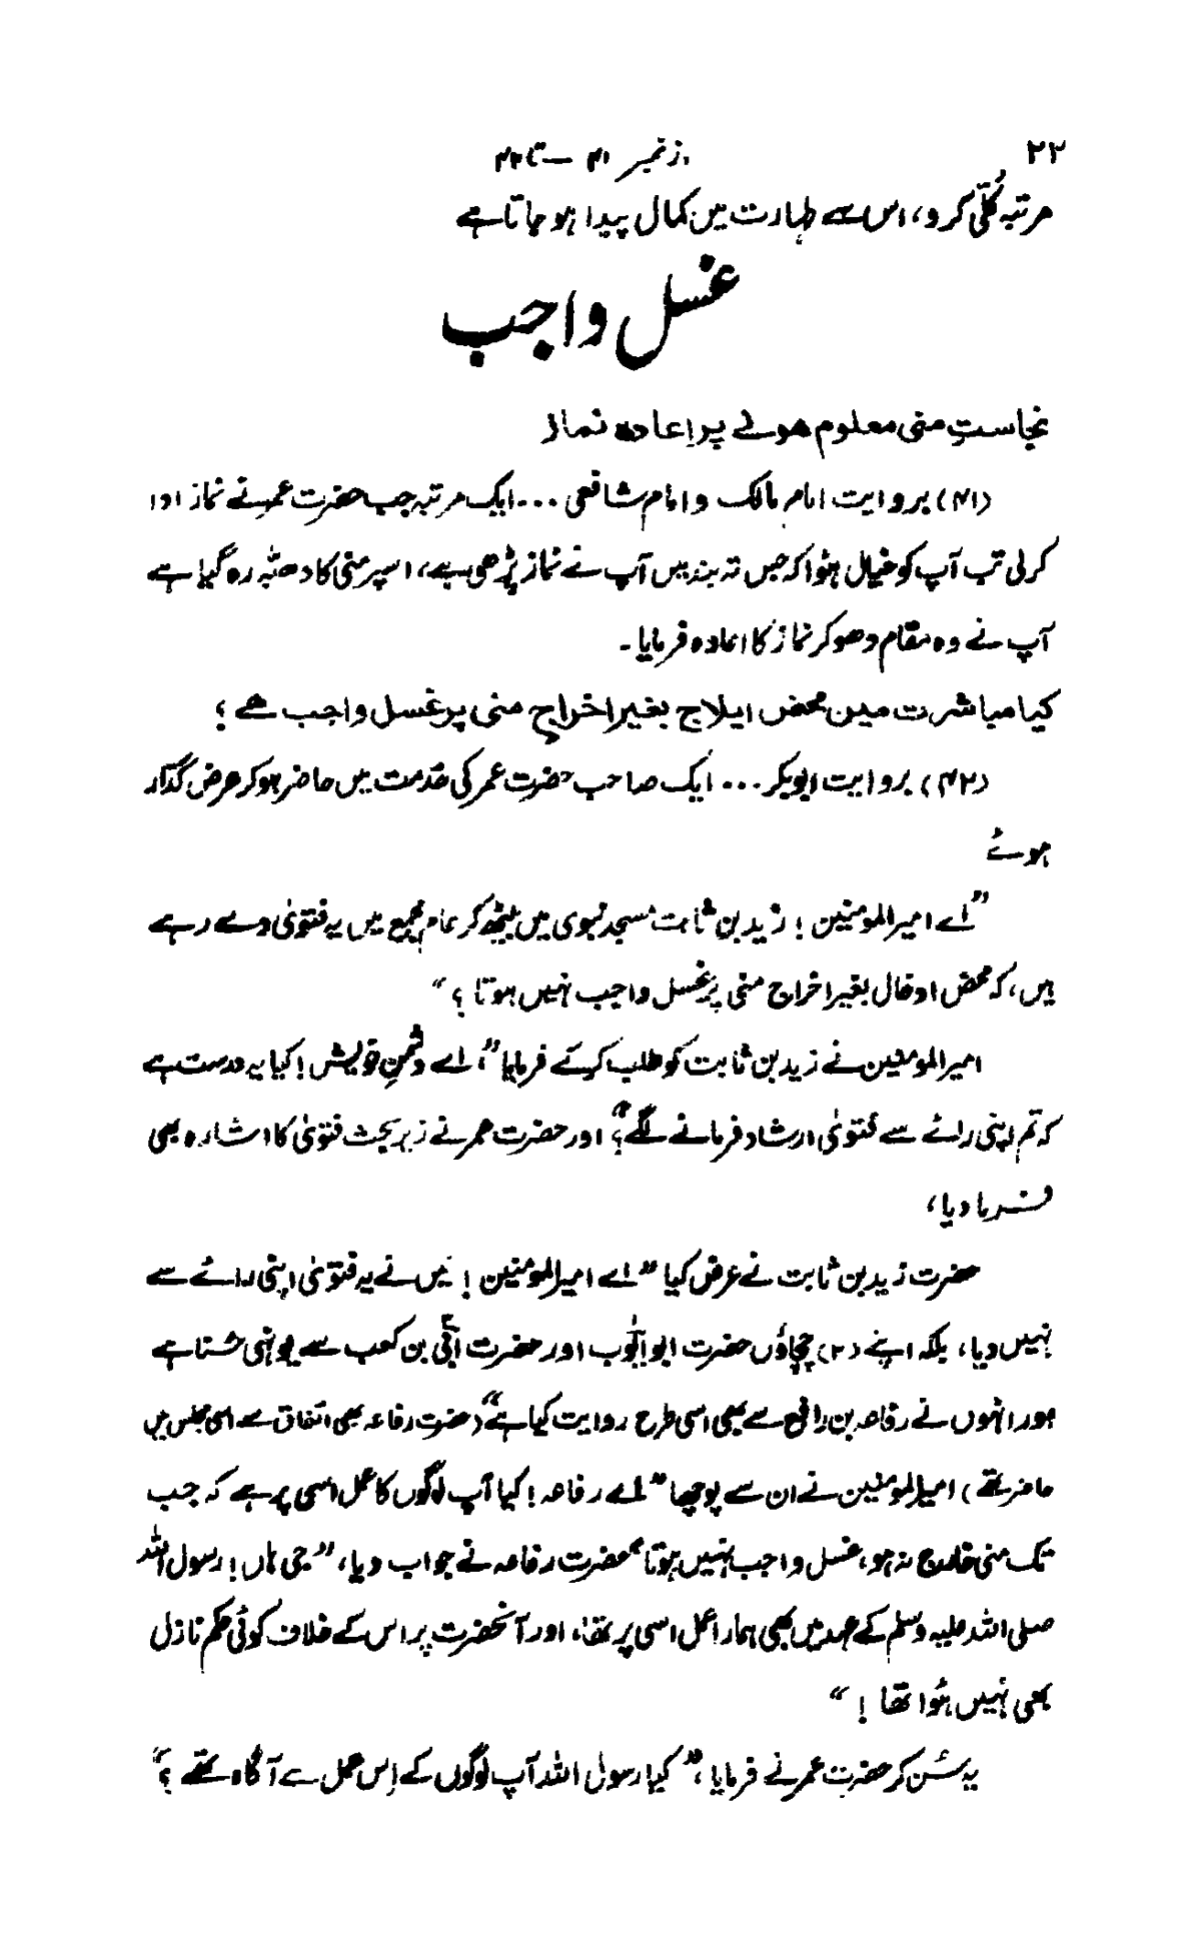 ۲۲
ازنمبر ۴۱ — تا ۴۲
مرتبہ کُلّی کرو، اس سے طہارت میں کمال پیدا ہو جاتا ہے
غسل واجب
نجاستِ منی معلوم ہونے پر اِعادہ نماز
(۴۱) بروایت امام مالک و امام شافعی ... ایک مرتبہ جب حضرت عمر نے نماز ادا
کر لی تب آپ کو خیال ہُوا کہ جس تہ بند میں آپ نے نماز پڑھی ہے، اسپر منی کا دھبّہ رہ گیا ہے
آپ نے وہ مقام دھو کر نماز کا اعادہ فرمایا۔
کیا مباشرت میں محض ایلاج بغیر اخراجِ منی پر غسل واجب ہے ؟
(۴۲) بروایت ابوبکر ... ایک صاحب حضرت عمر کی خدمت میں حاضر ہو کر عرض گذار
ہوئے
”اے امیر المومنین ! زید بن ثابت مسجد نبوی میں بیٹھ کر عام مجمع میں یہ فتویٰ دے رہے
ہیں، کہ محض ادخال بغیر اخراج منی پر غسل واجب نہیں ہوتا ؟“
امیر المومنین نے زید بن ثابت کو طلب کر کے فرمایا ”، اے دشمنِ خویش ! کیا یہ درست ہے
کہ تم اپنی رائے سے فتویٰ ارشاد فرمانے لگے؟“ اور حضرت عمر نے زیر بحث فتویٰ کا اشارہ بھی
فرما دیا،
حضرت زید بن ثابت نے عرض کیا ”اے امیر المومنین ! میں نے یہ فتویٰ اپنی رائے سے
نہیں دیا، بلکہ اپنے (۲) چچاؤں حضرت ابو ایّوب اور حضرت اُبیّ بن کعب سے یونہی سُنا ہے
اور انہوں نے رفاعہ بن رافع سے بھی اسی طرح روایت کیا ہے“ (حضرت رفاعہ بھی اتفاق سے اسی مجلس میں
حاضر تھے) امیر المومنین نے ان سے پوچھا ”اے رفاعہ ! کیا آپ لوگوں کا عمل اسی پر ہے کہ جب
تک منی خارج نہ ہو، غسل واجب نہیں ہوتا“ حضرت رفاعہ نے جواب دیا، ”جی ہاں ! رسول اللہ
صلی اللہ علیہ وسلم کے عہد میں بھی ہمارا عمل اسی پر تھا، اور آنحضرت پر اس کے خلاف کوئی حکم نازل
بھی نہیں ہُوا تھا !“
یہ سُن کر حضرت عمر نے فرمایا، ”کیا رسول اللہ آپ لوگوں کے اِس عمل سے آگاہ تھے ؟“